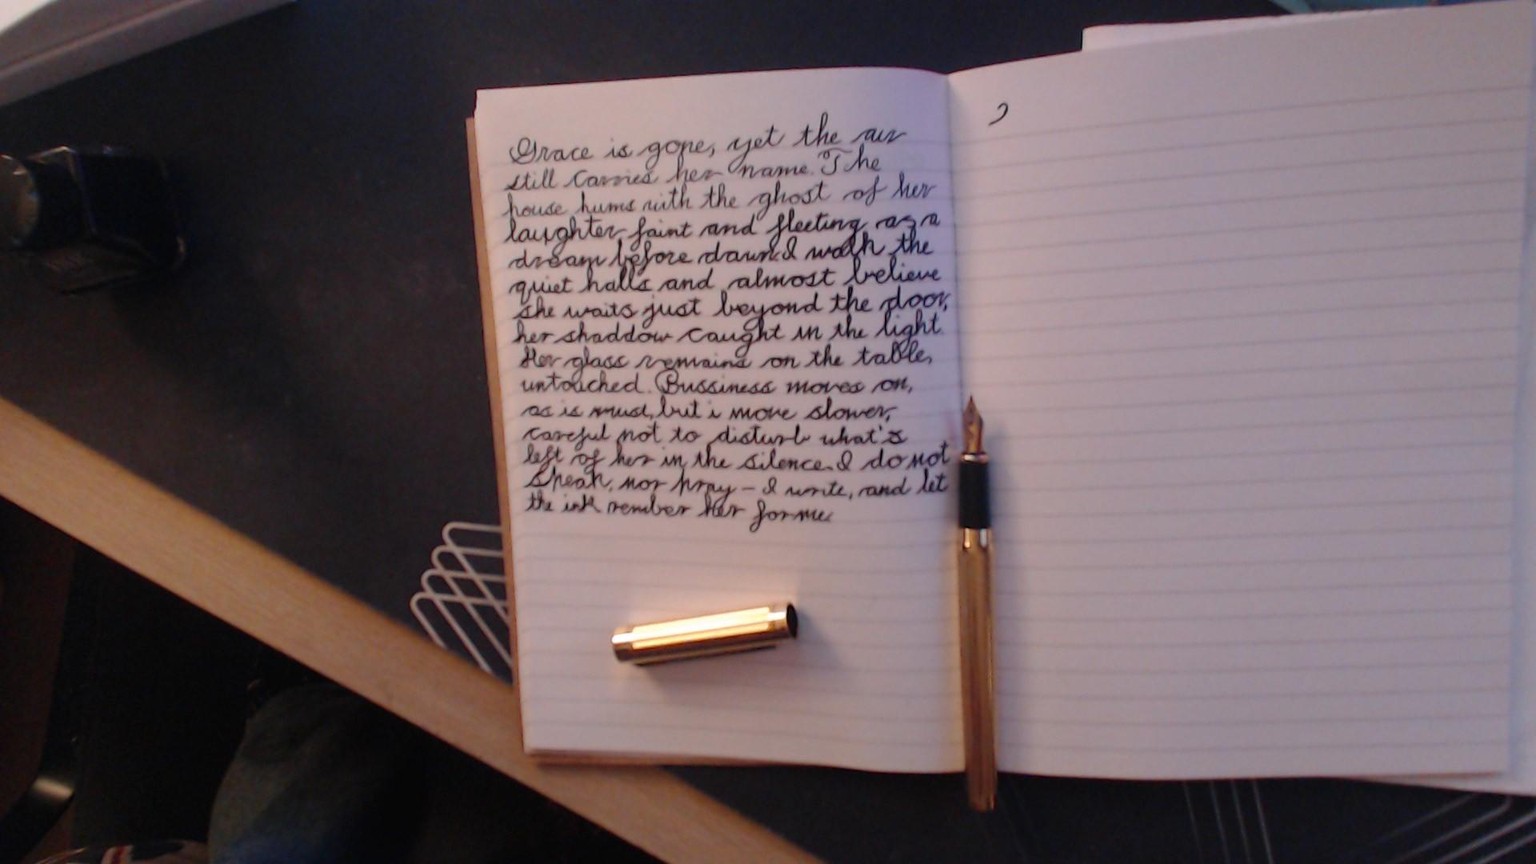 Grace is gone, yet the air
still carries her name. The
house hums with the ghost of her
laughter faint and fleeting as a
dream before dawn. I walk the
quiet halls and almost believe
she waits just beyond the door,
her shaddow caught in the light.
Her glass remains on the table,
untouched. Bussiness moves on,
as is must, but i move slower,
careful not to disturb what's
left of her in the silence. I do not
speak, nor pray – I write, and let
the ink rember her for me.